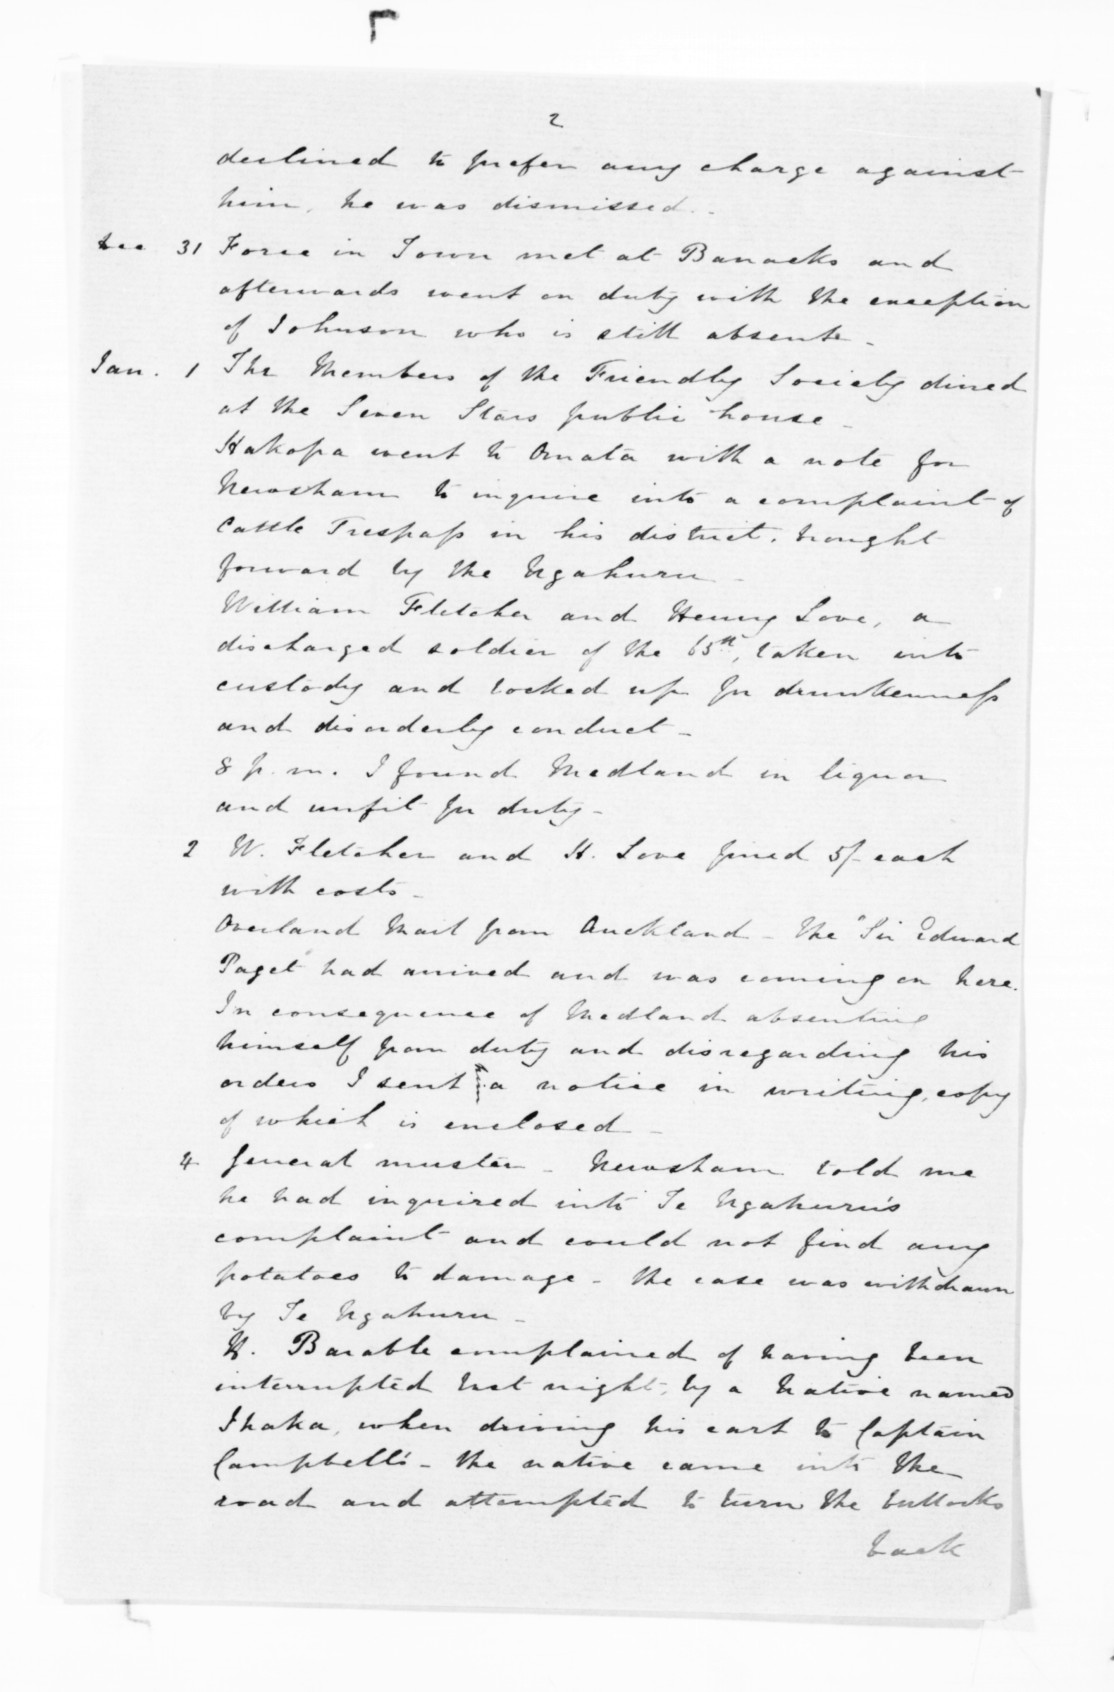 2
declined to prefer any charge against
him, he was dismissed.
Dec 31 Force in Town met at Barracks and
afterwards went on duty with the exception
of Johnson who is still absent.
Jan. 1 The Members of the Friendly Society dined
at the Seven Stars public house_
Hakopa went to Omata with a note for
Newsham to inquire into a complaint of
Cattle Trespass in his district, brought
forward by the Ngahuru_
William Fletcher and Henry Love, a
discharged soldier of the 65th, taken into
custody and locked up for drunkenness
and disorderly conduct_
8 p.m. I found Medland in liquor
and unfit for duty_
2 W. Fletcher and H. Love fined 5/- each
with costs_
Overland Mail from Auckland_ the "Sir Edward
Paget" had arrived and was coming on here.
In consequence of Medland absenting
himself from duty and disregarding his
orders I sent a notice in writing, copy
of which is enclosed_
4 General muster_ Newsham told me
he had inquired into Te Ngahuru's
complaint and could not find any
potatoes to damage_ the case was withdrawn
by Te Ngahuru_
H. Barable complained of having been
interrupted last night, by a Native named
Ihaka, when driving his cart to Captain
Campbell's_ the native came into the
road and attempted to turn the bullocks
back